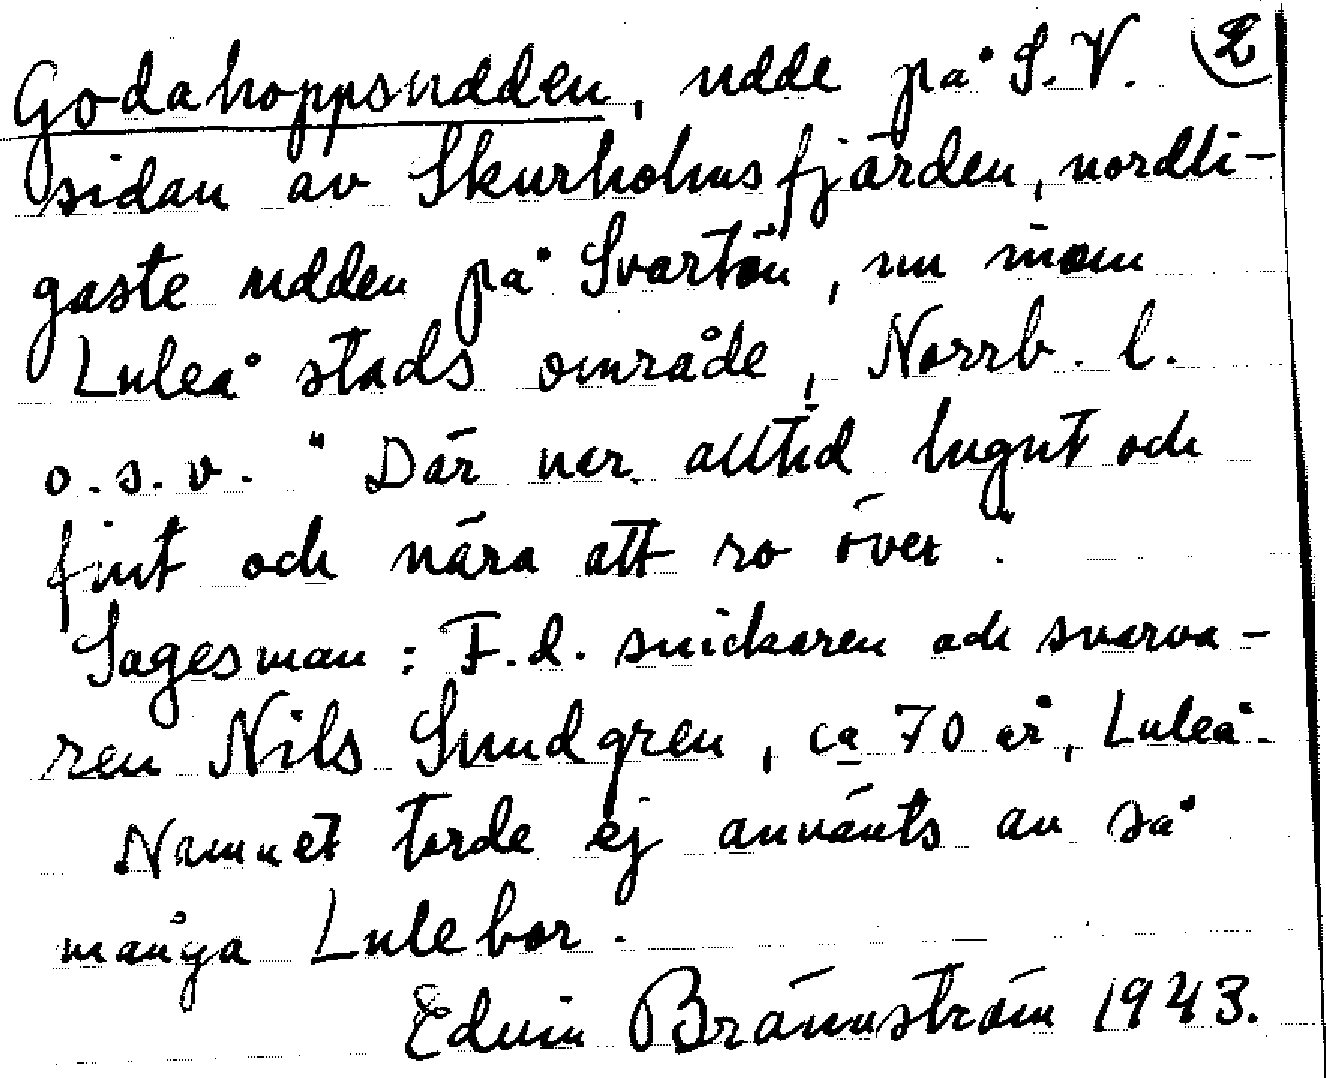 Godahoppsudden, udde på S.V. 2
sidan av Skurholmsfjärden, nordli-
gaste udden på Svartön, nu inom
Luleå stads område, Norrb. l.
o.s.v. "Där var alltid lugnt och
fint och nära att ro över".
Sagesman: F.d. snickaren och svarva-
ren Nils Sundgren, ca 70 år, Luleå.
Namnet torde ej använts av så
många Lulebor.
Edvin Brännström 1943.